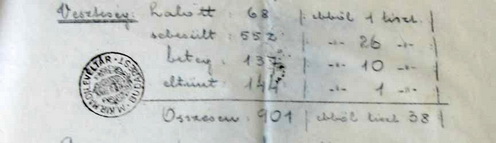 Veszteség: halott : 68 | ebből 1 tiszt. |
sebesült : 552 | -"- 26 -"- |
beteg : 137 | -"- 10 -"- |
eltünt : 144 | -"- 1 -"- |
Összesen : 901 | ebből tiszt 38 |